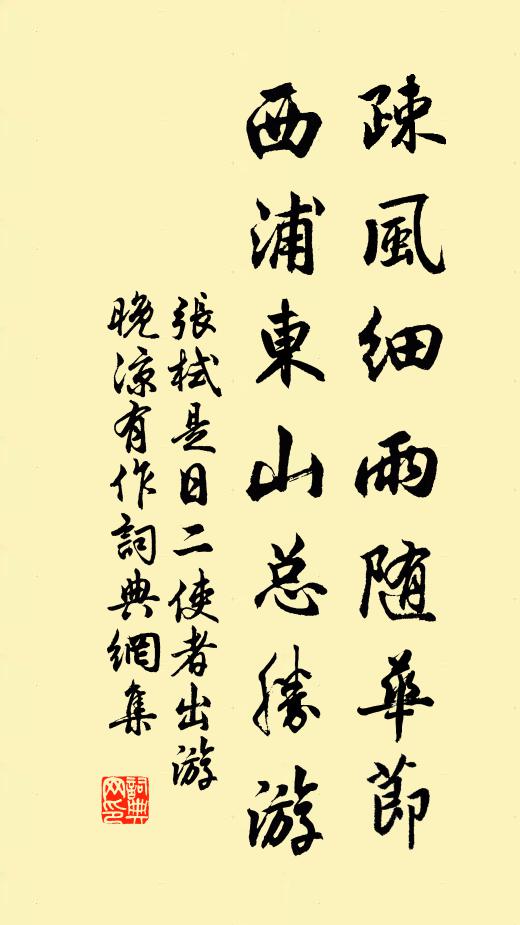 疎風細雨随華節
西浦東山总勝游
張栻是日二使者出游
晚凉有作詞典網集
詞典網印